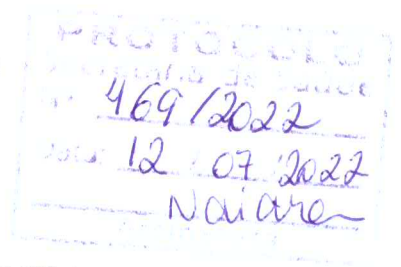 PROTOCOLO
Nº 469/2022
Data: 12 07 2022
Naiara